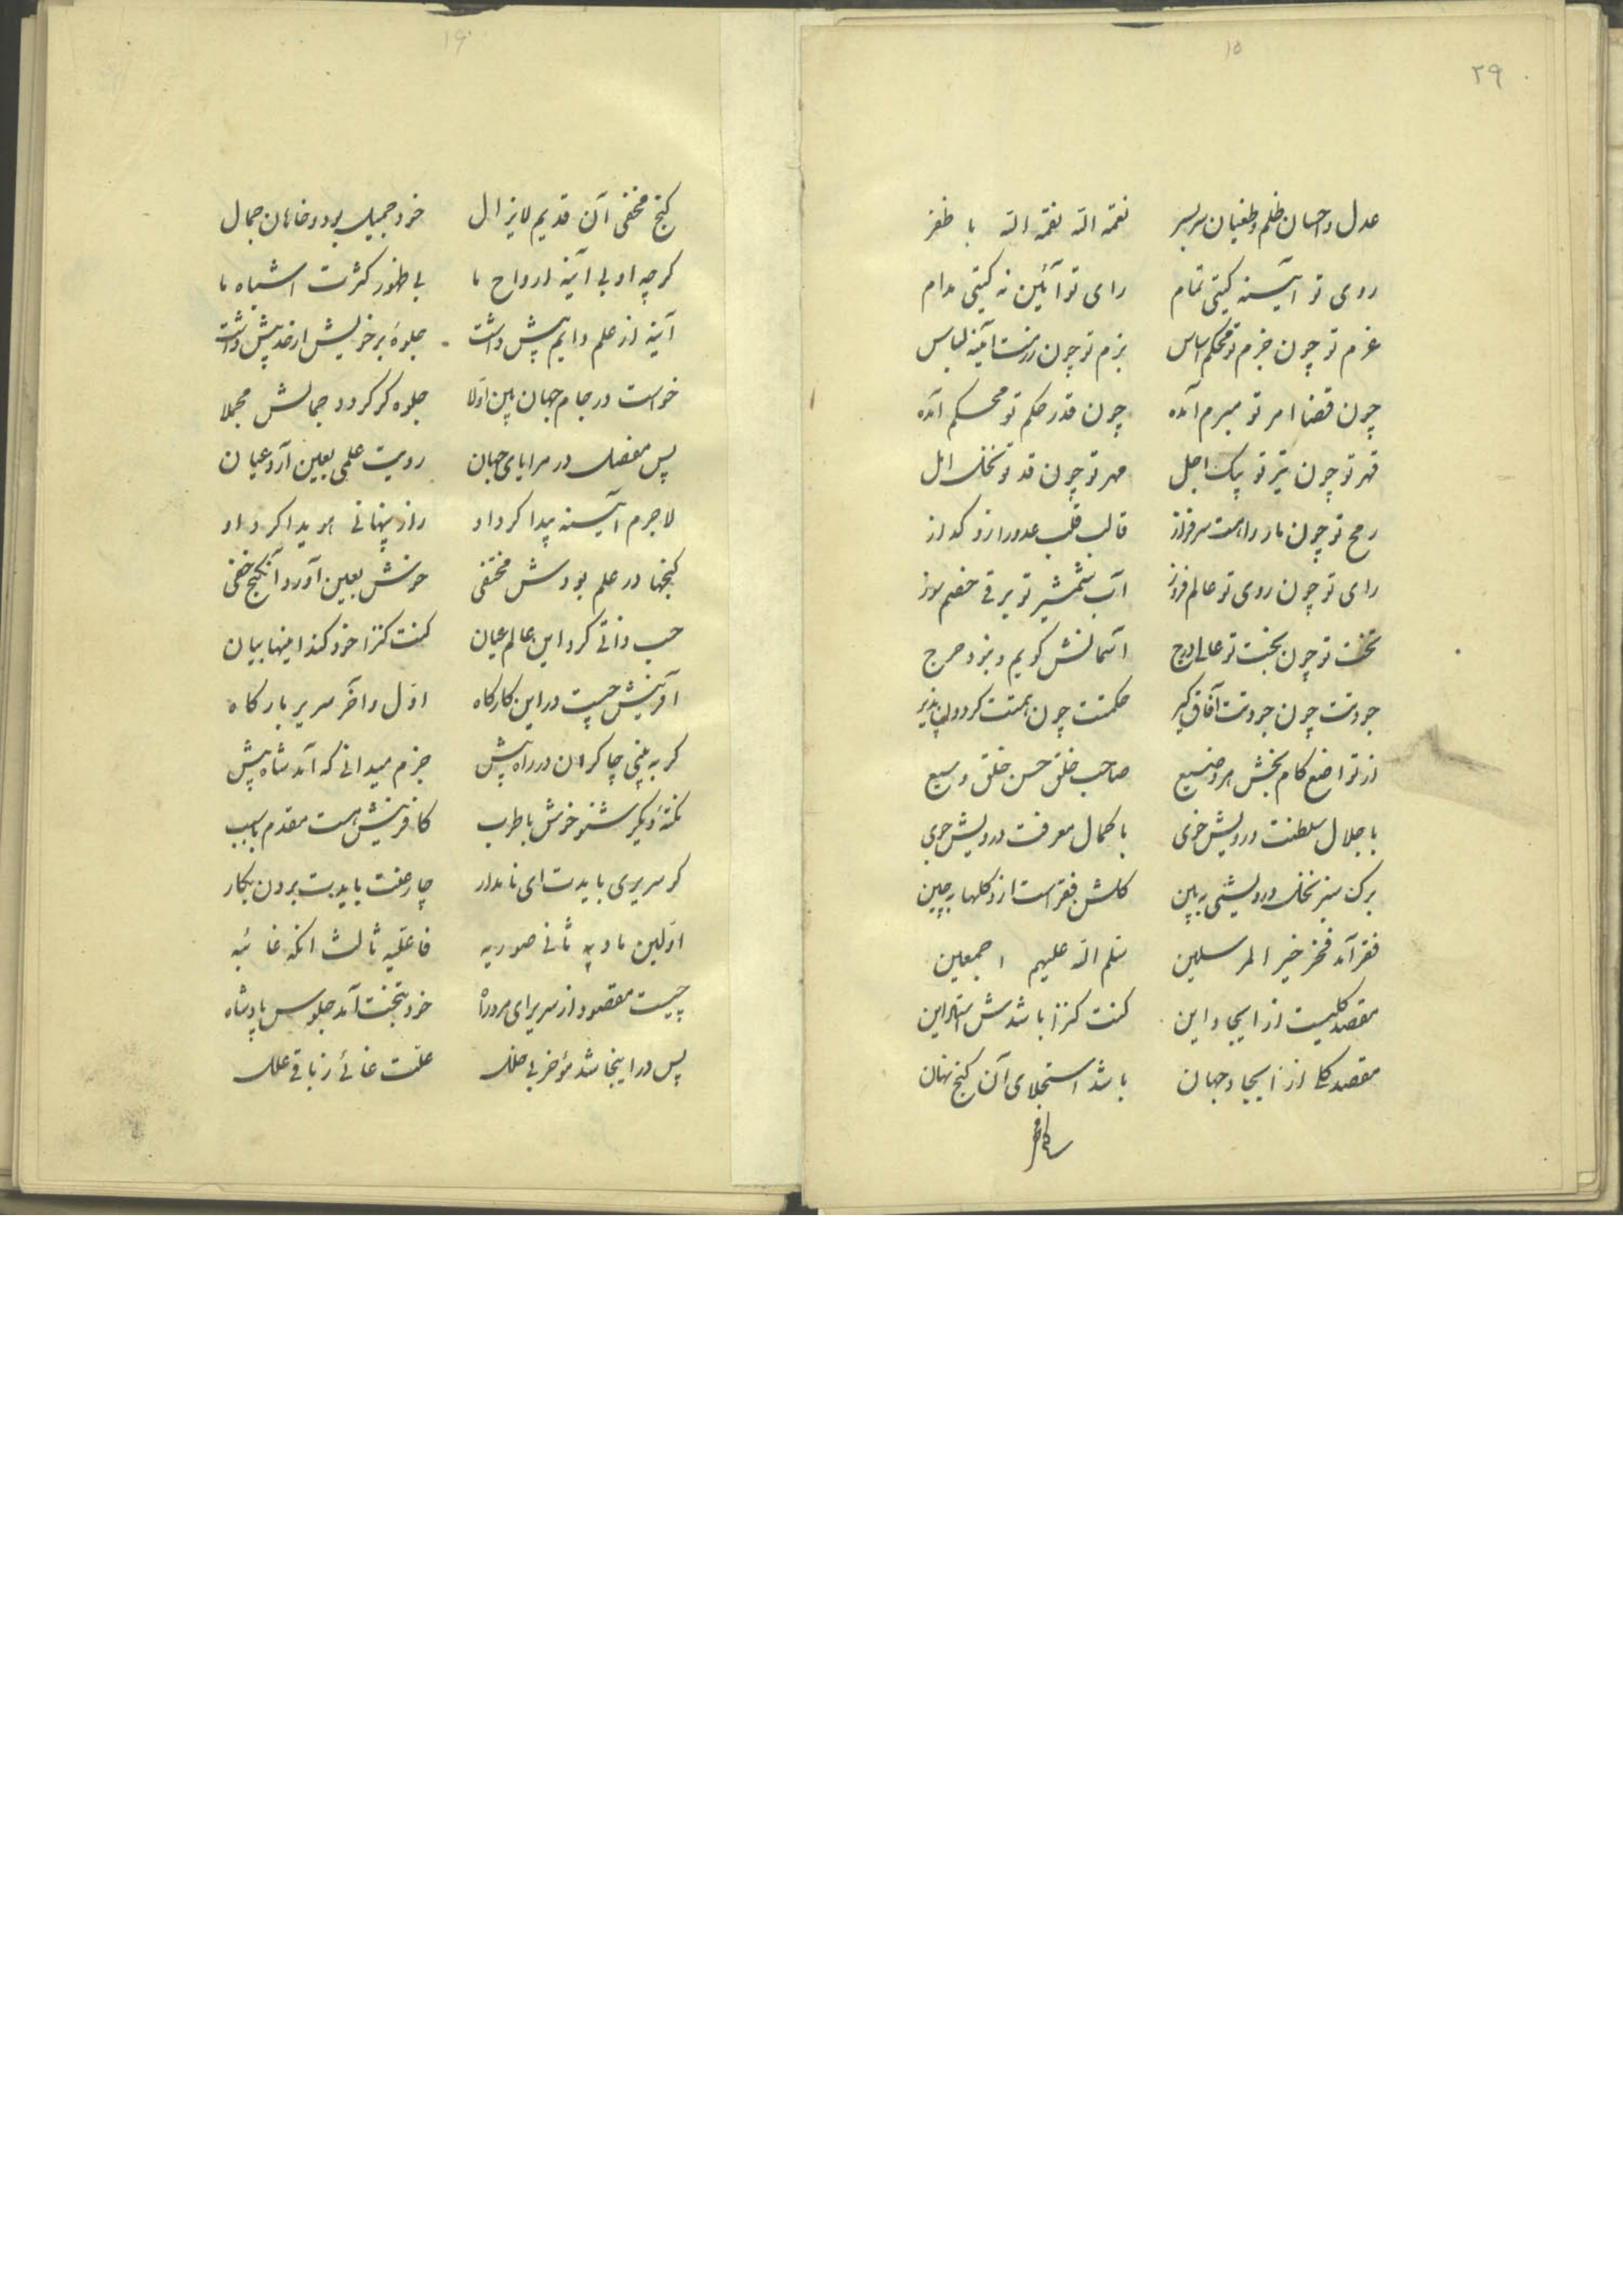 ۱۵
۲۹
عدل و احسان ظلم و طغیان سربسر نقمة الله نقمة الله با ظفر
روی تو آیینه گیتی تمام رای تو آئین نه گیتی مدام
عزم تو چون حزم تو محکم اساس بزم تو چون رزمت آینه لباس
چون قضا امر تو مبرم آمده چون قدر حکم تو محکم آمده
قهر تو چون تیر تو پیک اجل مهر تو چون قد تو نخل امل
رمح تو چون مار راست سرفراز قالب قلب عدو را زو گداز
رای تو چون روی تو عالم فروز آب شمشیر تو برقی خصم سوز
تخت تو چون بخت تو عالی درج آسمانش گویم و نبود حرج
جودت چون جودت آفاق گیر حکمتت چون همتت گردون پذیر
از تواضع کام بخش هر وضیع صاحب خلق حسن خلق وسیع
با جلال سلطنت درویش خوی با کمال معرفت درویش جوی
برگ سبز نخل درویشی ببین گلشن فقر است ازو گلها بچین
فقر آمد فخر خیر المرسلین سلم الله علیهم اجمعین
مقصد کلیست از ایجاد این کنت کنزا باشدش
مقصد کلی از ایجاد جهان باشد استجلای آن گنج نهان
۱۶
گنج مخفی آن قدیم لایزال خود جمیل بود و خاهان جمال
گرچه او بی آینه ارواح ما بی ظهور کثرت اشباه ما
آینه از علم دایم پیش داشت جلوهٔ بر خویش از خود پیش داشت
خواست در جام جهان بین اولا جلوه گر گردد جمالش مجملا
پس مفصل در مرایای جهان رویت علمی بعین آرد عیان
لاجرم آیینه پیدا کرد او راز پنهانی هویدا کرد او
گنجها در علم بودش مختفی خوش بعین آورد آن گنج خفی
حب ذاتی کرد این عالم عیان کنت کنزا خود کند اینها بیان
آفرینش چیست در این کارگاه اول و آخر سریر بارگاه
گر به بینی چاکران در راه پیش جزم میدانی که آمد شاه پیش
نکتهٔ دیگر شنو خوش با طرب کافرینش هست مقدم با سبب
گر سریری بایدت ای نامدار چار علت بایدت بردن بکار
اولین مادیه ثانی صوریه فاعلیه ثالث آنکه غائیه
چیست مقصود از سریر ای مرد راه خود بتخت آمد جلوس پادشاه
پس در اینجا شد مؤخر بی خلل علت غائی ز باقی علل